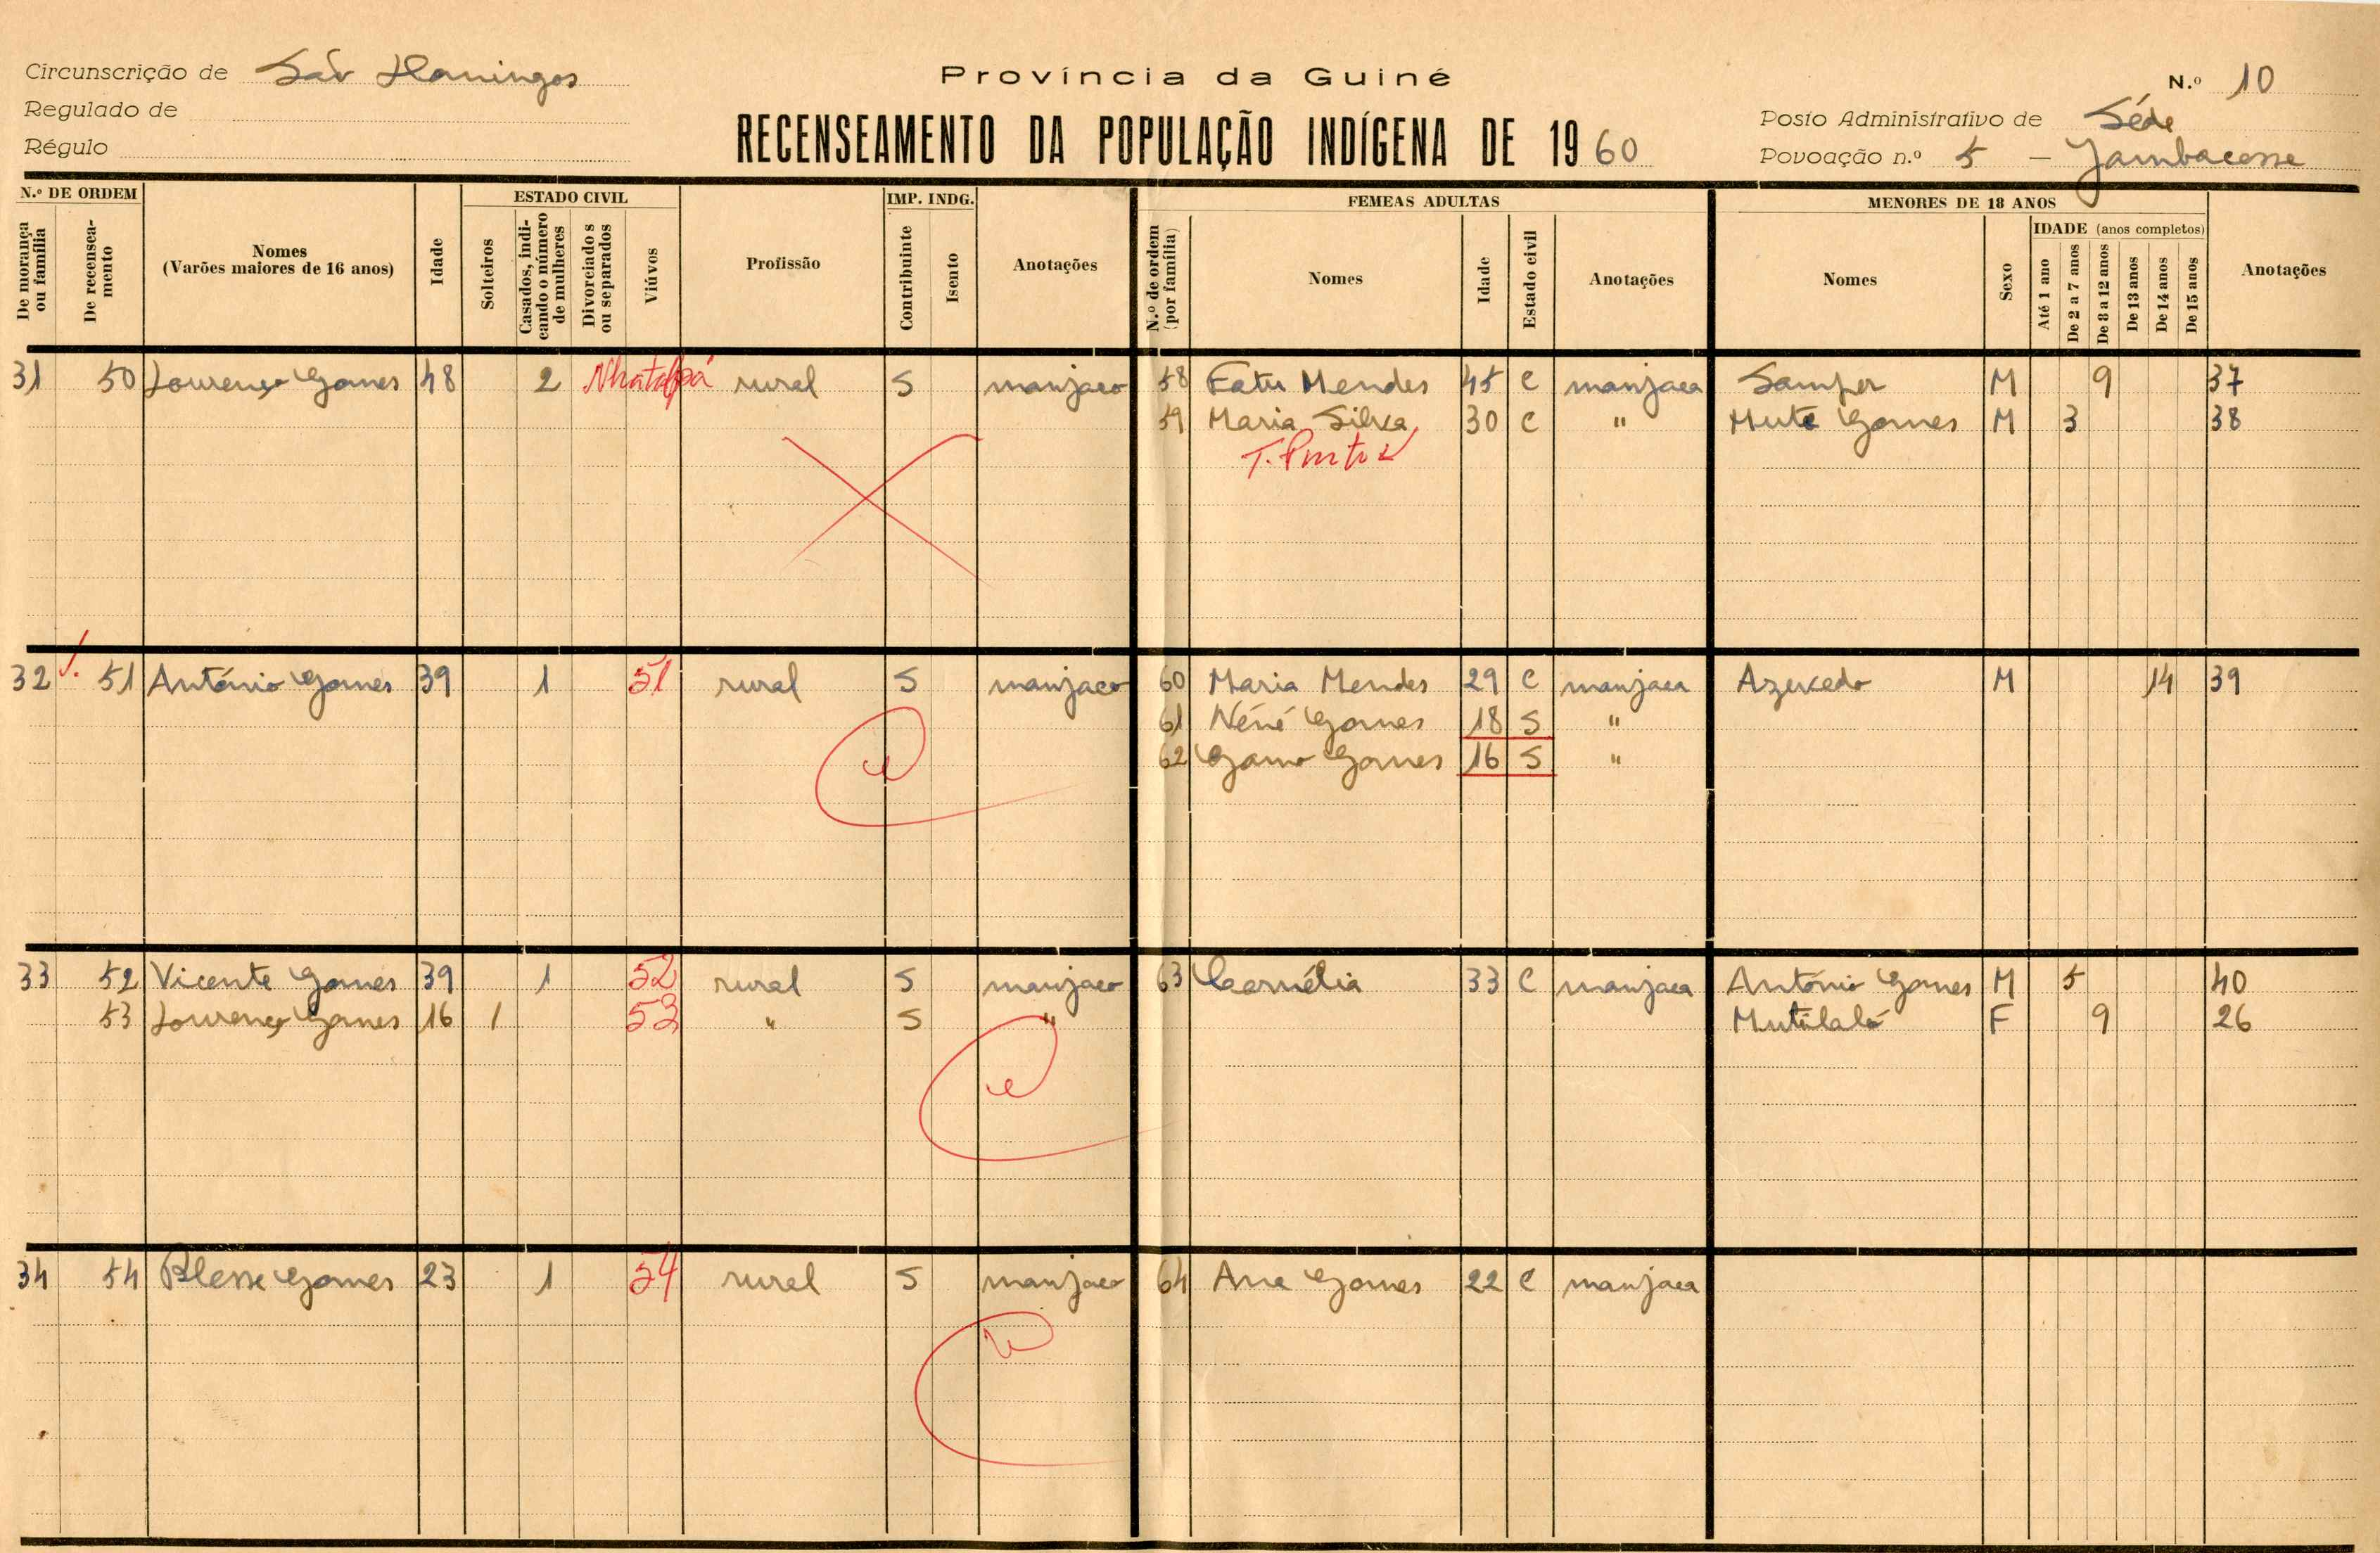 Circunscrição de São Domingos
Regulado de
Régulo
Província da Guiné
RECENSEAMENTO DA POPULAÇÃO INDÍGENA DE 1960
N.º 10
Posto Administrativo de Séde
Povoação n.º 5 — Jambacosse
N.º DE ORDEM
De morança ou família
De recenseamento
Nomes
(Varões maiores de 16 anos)
Idade
ESTADO CIVIL
Solteiros
Casados, indicando o número de mulheres
Divorciados ou separados
Viúvos
Profissão
IMP. INDG.
Contribuinte
Isento
Anotações
FEMEAS ADULTAS
N.º de ordem (por família)
Nomes
Idade
Estado civil
Anotações
MENORES DE 18 ANOS
Nomes
Sexo
IDADE (anos completos)
Até 1 ano
De 2 a 7 anos
De 8 a 12 anos
De 13 anos
De 14 anos
De 15 anos
Anotações
31 50 Lourenço Gomes 48 2 rural S manjaco 58 Fatu Mendes 45 C manjaca Samper M 9 37
59 Maria Silva 30 C " Mute Gomes M 3 38
T. Pinto
32 51 António Gomes 39 1 51 rural S manjaco 60 Maria Mendes 29 C manjaca Azevedo M 14 39
61 Néné Gomes 18 S "
62 Gamo Gomes 16 S "
33 52 Vicente Gomes 39 1 52 rural S manjaco 63 Cornélia 33 C manjaca António Gomes M 5 40
53 Lourenço Gomes 16 1 53 " S " Mutilaló F 9 26
34 54 Blesse Gomes 23 1 54 rural S manjaco 64 Ana Gomes 22 C manjaca